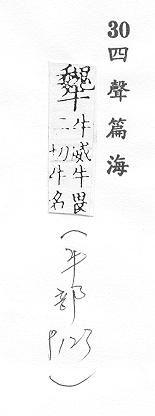 30四聲篇海
犩牛威牛畏
二切牛名
(牛部
P123)